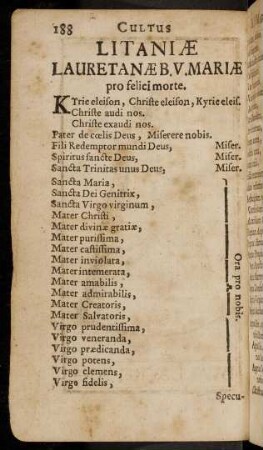 188 CULTUS
LITANIÆ
LAURETANÆ B. V. MARIÆ
pro felici morte.
KTrie eleiſon, Chriſte eleiſon, Kyrie eleiſ.
Chriſte audi nos.
Chriſte exaudi nos.
Pater de cœlis Deus, Miſerere nobis.
Fili Redemptor mundi Deus, Miſer.
Spiritus ſancte Deus, Miſer.
Sancta Trinitas unus Deus, Miſer.
Sancta Maria,
Sancta Dei Genitrix,
Sancta Virgo virginum,
Mater Chriſti,
Mater divinæ gratiæ,
Mater puriſſima,
Mater caſtiſſima,
Mater inviolata,
Mater intemerata,
Mater amabilis,
Mater admirabilis,
Mater Creatoris,
Mater Salvatoris,
Virgo prudentiſſima,
Virgo veneranda,
Virgo prædicanda,
Virgo potens,
Virgo clemens,
Virgo fidelis,
Ora pro nobis.
Specu-